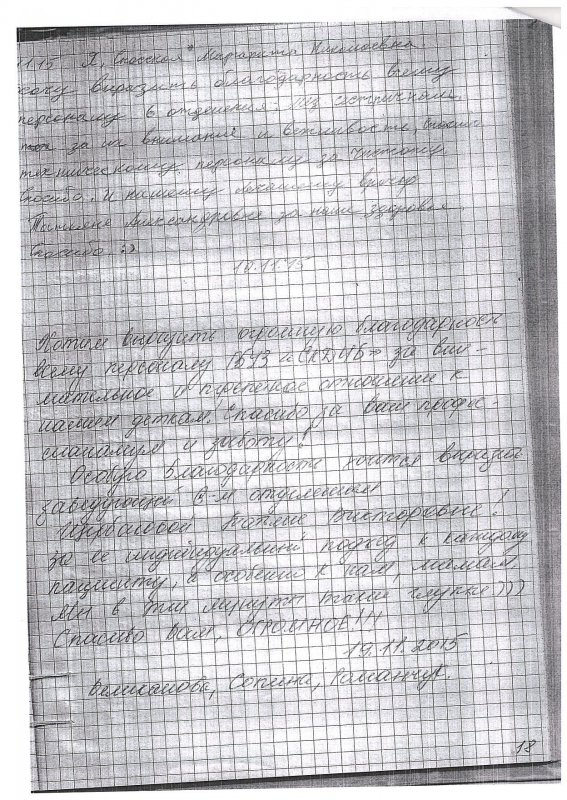 11.15 Я, Спасская Маргарита Николаевна
хочу выразить благодарность всему
персоналу 6 отделения.
за их внимание и вежливость, спасибо
техническому персоналу за чистоту
спасибо. И нашему лечащему врачу
Татьяне Александровне за наше здоровье
Спасибо. :)
10.11.15
Хотим выразить огромную благодарность
всему персоналу ГБУЗ «СКДИБ» за вни-
мательное и отношение к
нашим деткам. Спасибо за ваш профес-
сианализм и заботу!
Особую благодарность хочится выразить
заведующей 6-м отделением
Викторовне!
за её индивидуальный подход к каждому
пациенту, а особенно к нам, мамам
Мы в эти минуты такие глупые)))
Спасибо Вам, ОГРОМНОЕ!!!
19.11.2015
Великанова, Сокина, Романчук.
18